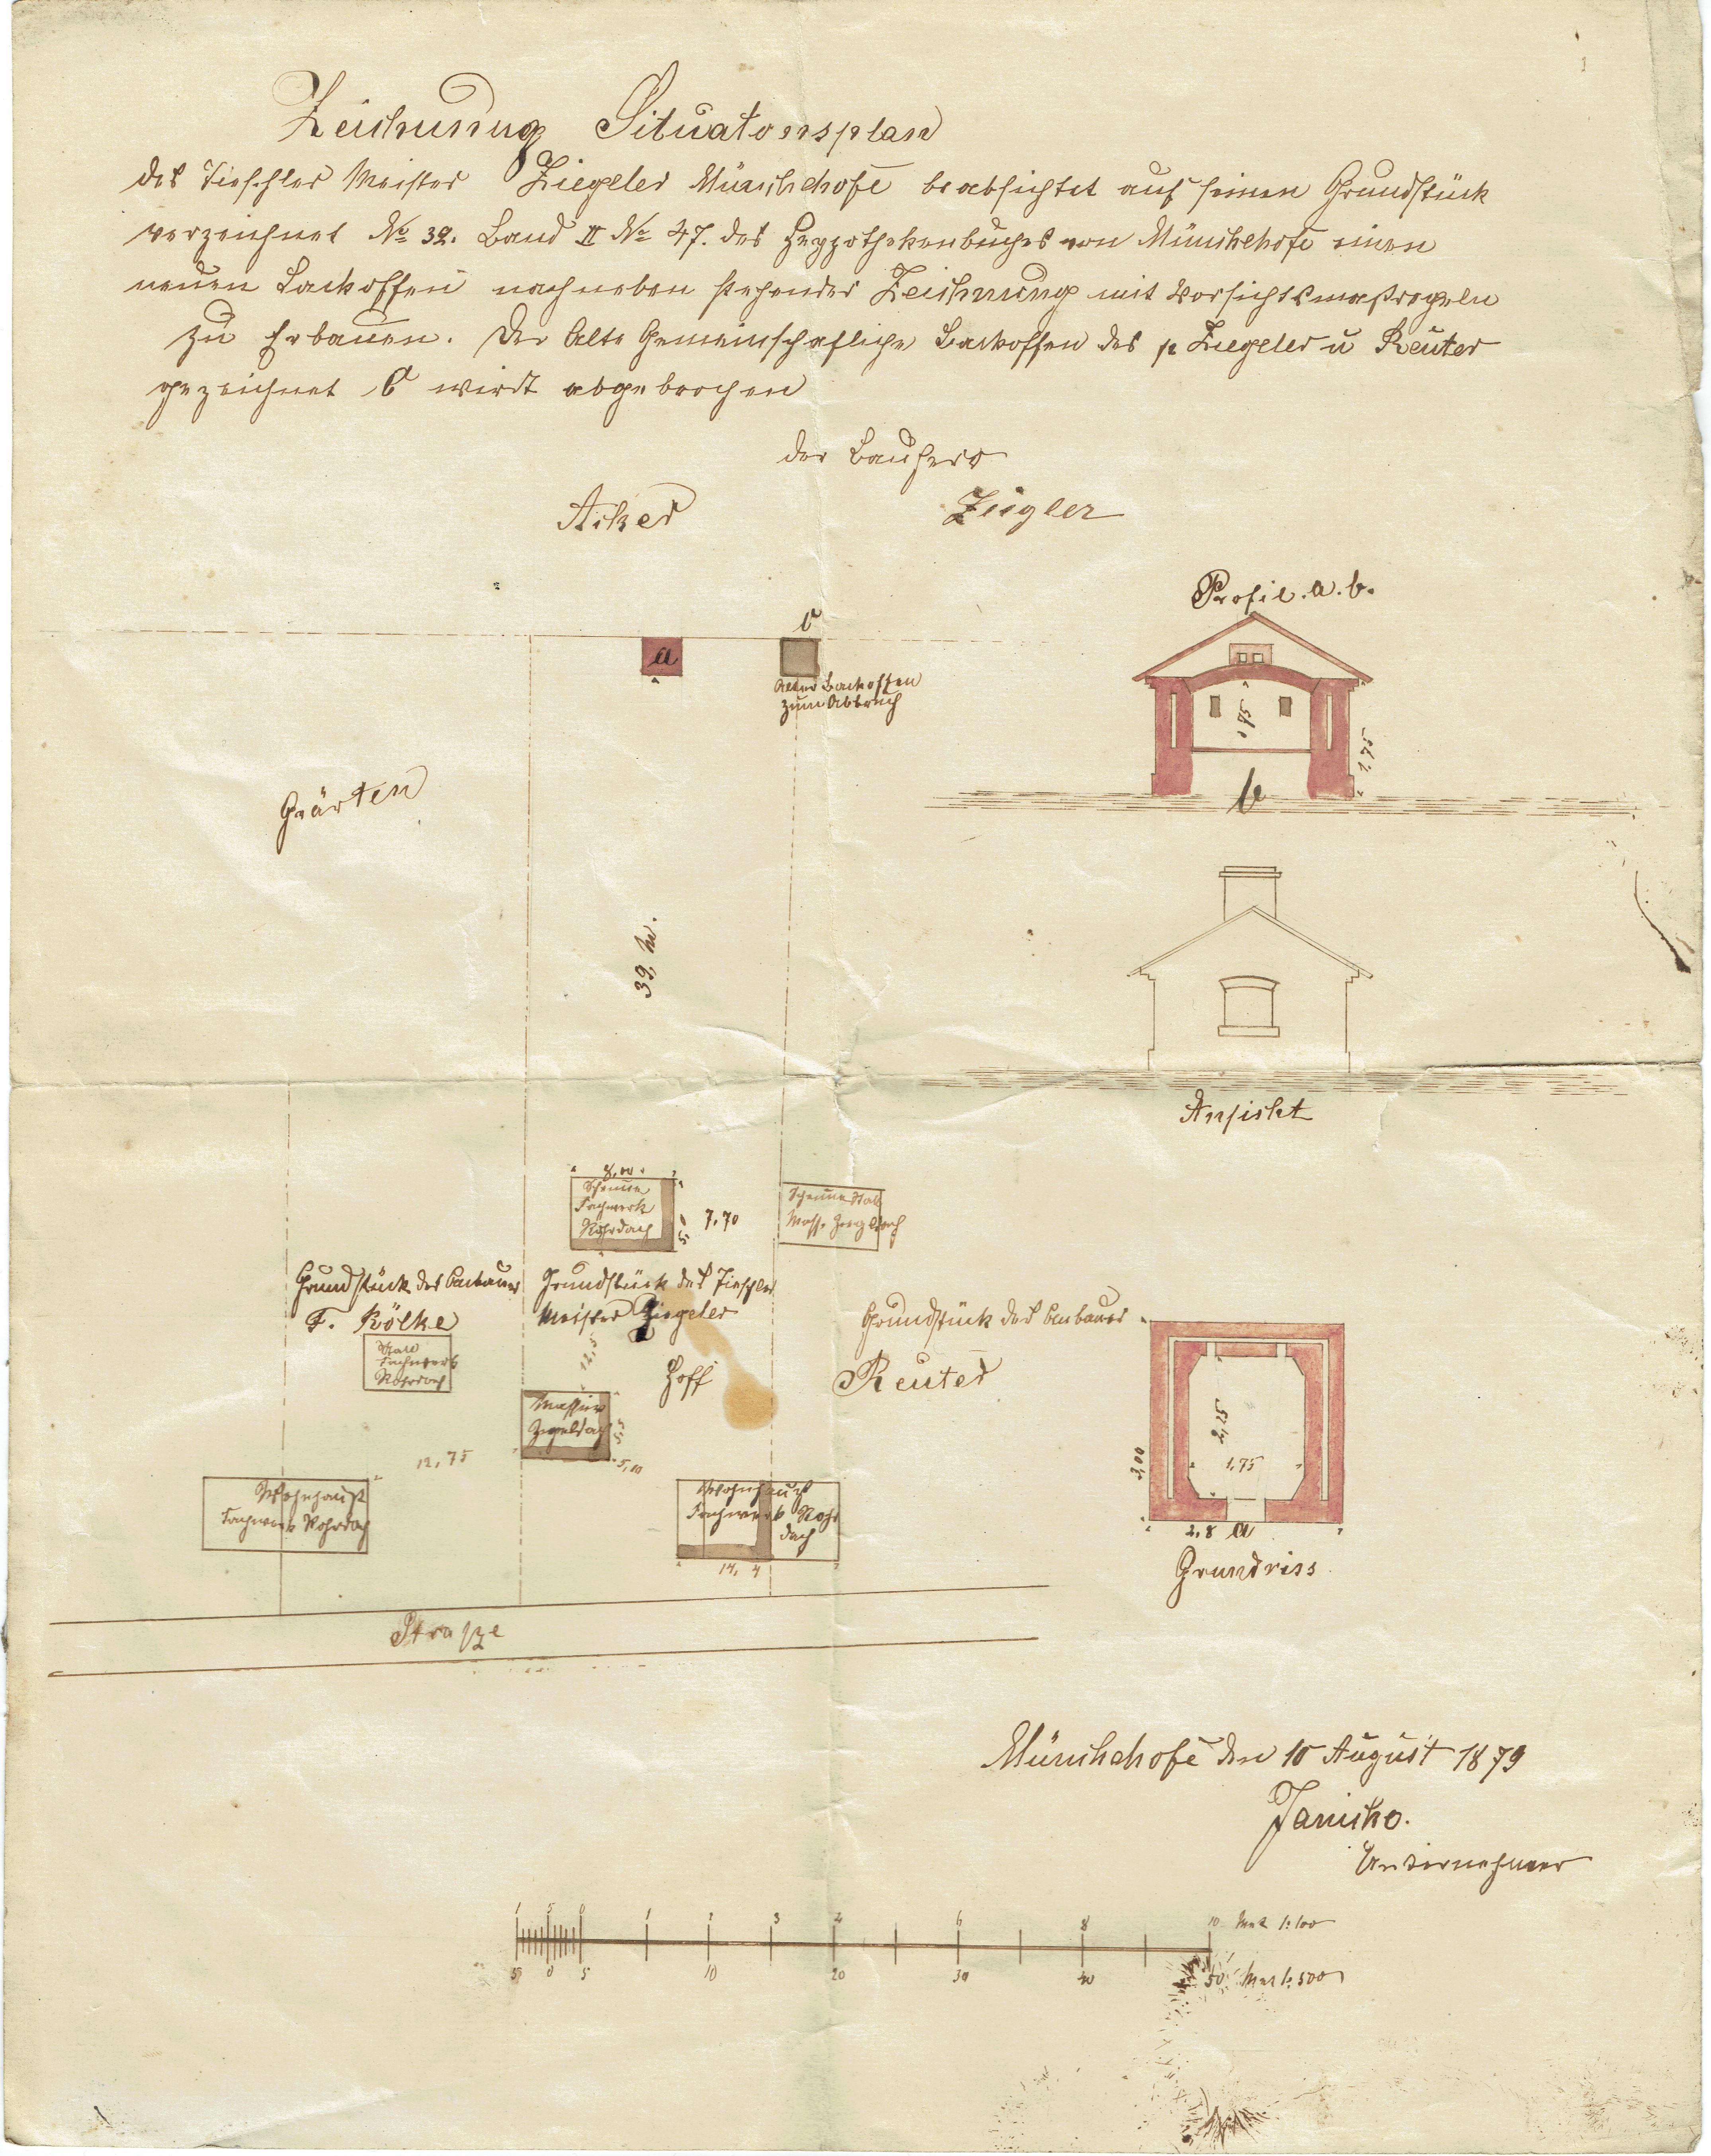 Zeichnung Situatonsplan
des Tischler Meister Ziegeler Münchehofe beabsichtet auf seinen Grundstück
verzeichnet No 32. Band II No 47. des Heypothekenbuches von Münchehofe einen
neuen Backoffen nach neben stehender Zeichnung mit Vorsichtsmaßregeln
zu Erbauen. Der Alte Gemeinschafliche Backoffen des p Ziegeler u Reuter
gezeichnet C wirdt abgebrochen
der Bauherr
Ziegler
Acker
Profil. a. b.
C
a
Alter Backoffen
zum Abbruch
1,75
b
Gärten
39, M.
Ansicht
8,00
Scheune
Fachwerk
Rohrdach
7,70
Scheune Stall
Mass. Ziegeldach
Grundstück des Anbauer
F. Kölke
Grundstück des Tischler
Meister Ziegeler
Grundstück des Anbauer
Reuter
Stall
Fachwerk
Rohrdach
Hoff
Massiv
Ziegeldach
5,10
12,75
Wohnhauß
Fachwerk Rohrdach
Wohnhauß
Fachwerk Rohr
dach
14, 4
Straße
3,00
2,25
1,75
2,8 a
Grundriss
Münchehofe den 10 August 1879
Janicko.
Unternehmer
1 5 0 1 2 3 4 6 8 10 Met 1:100
5 0 5 10 20 30 40 50 Met 1:500